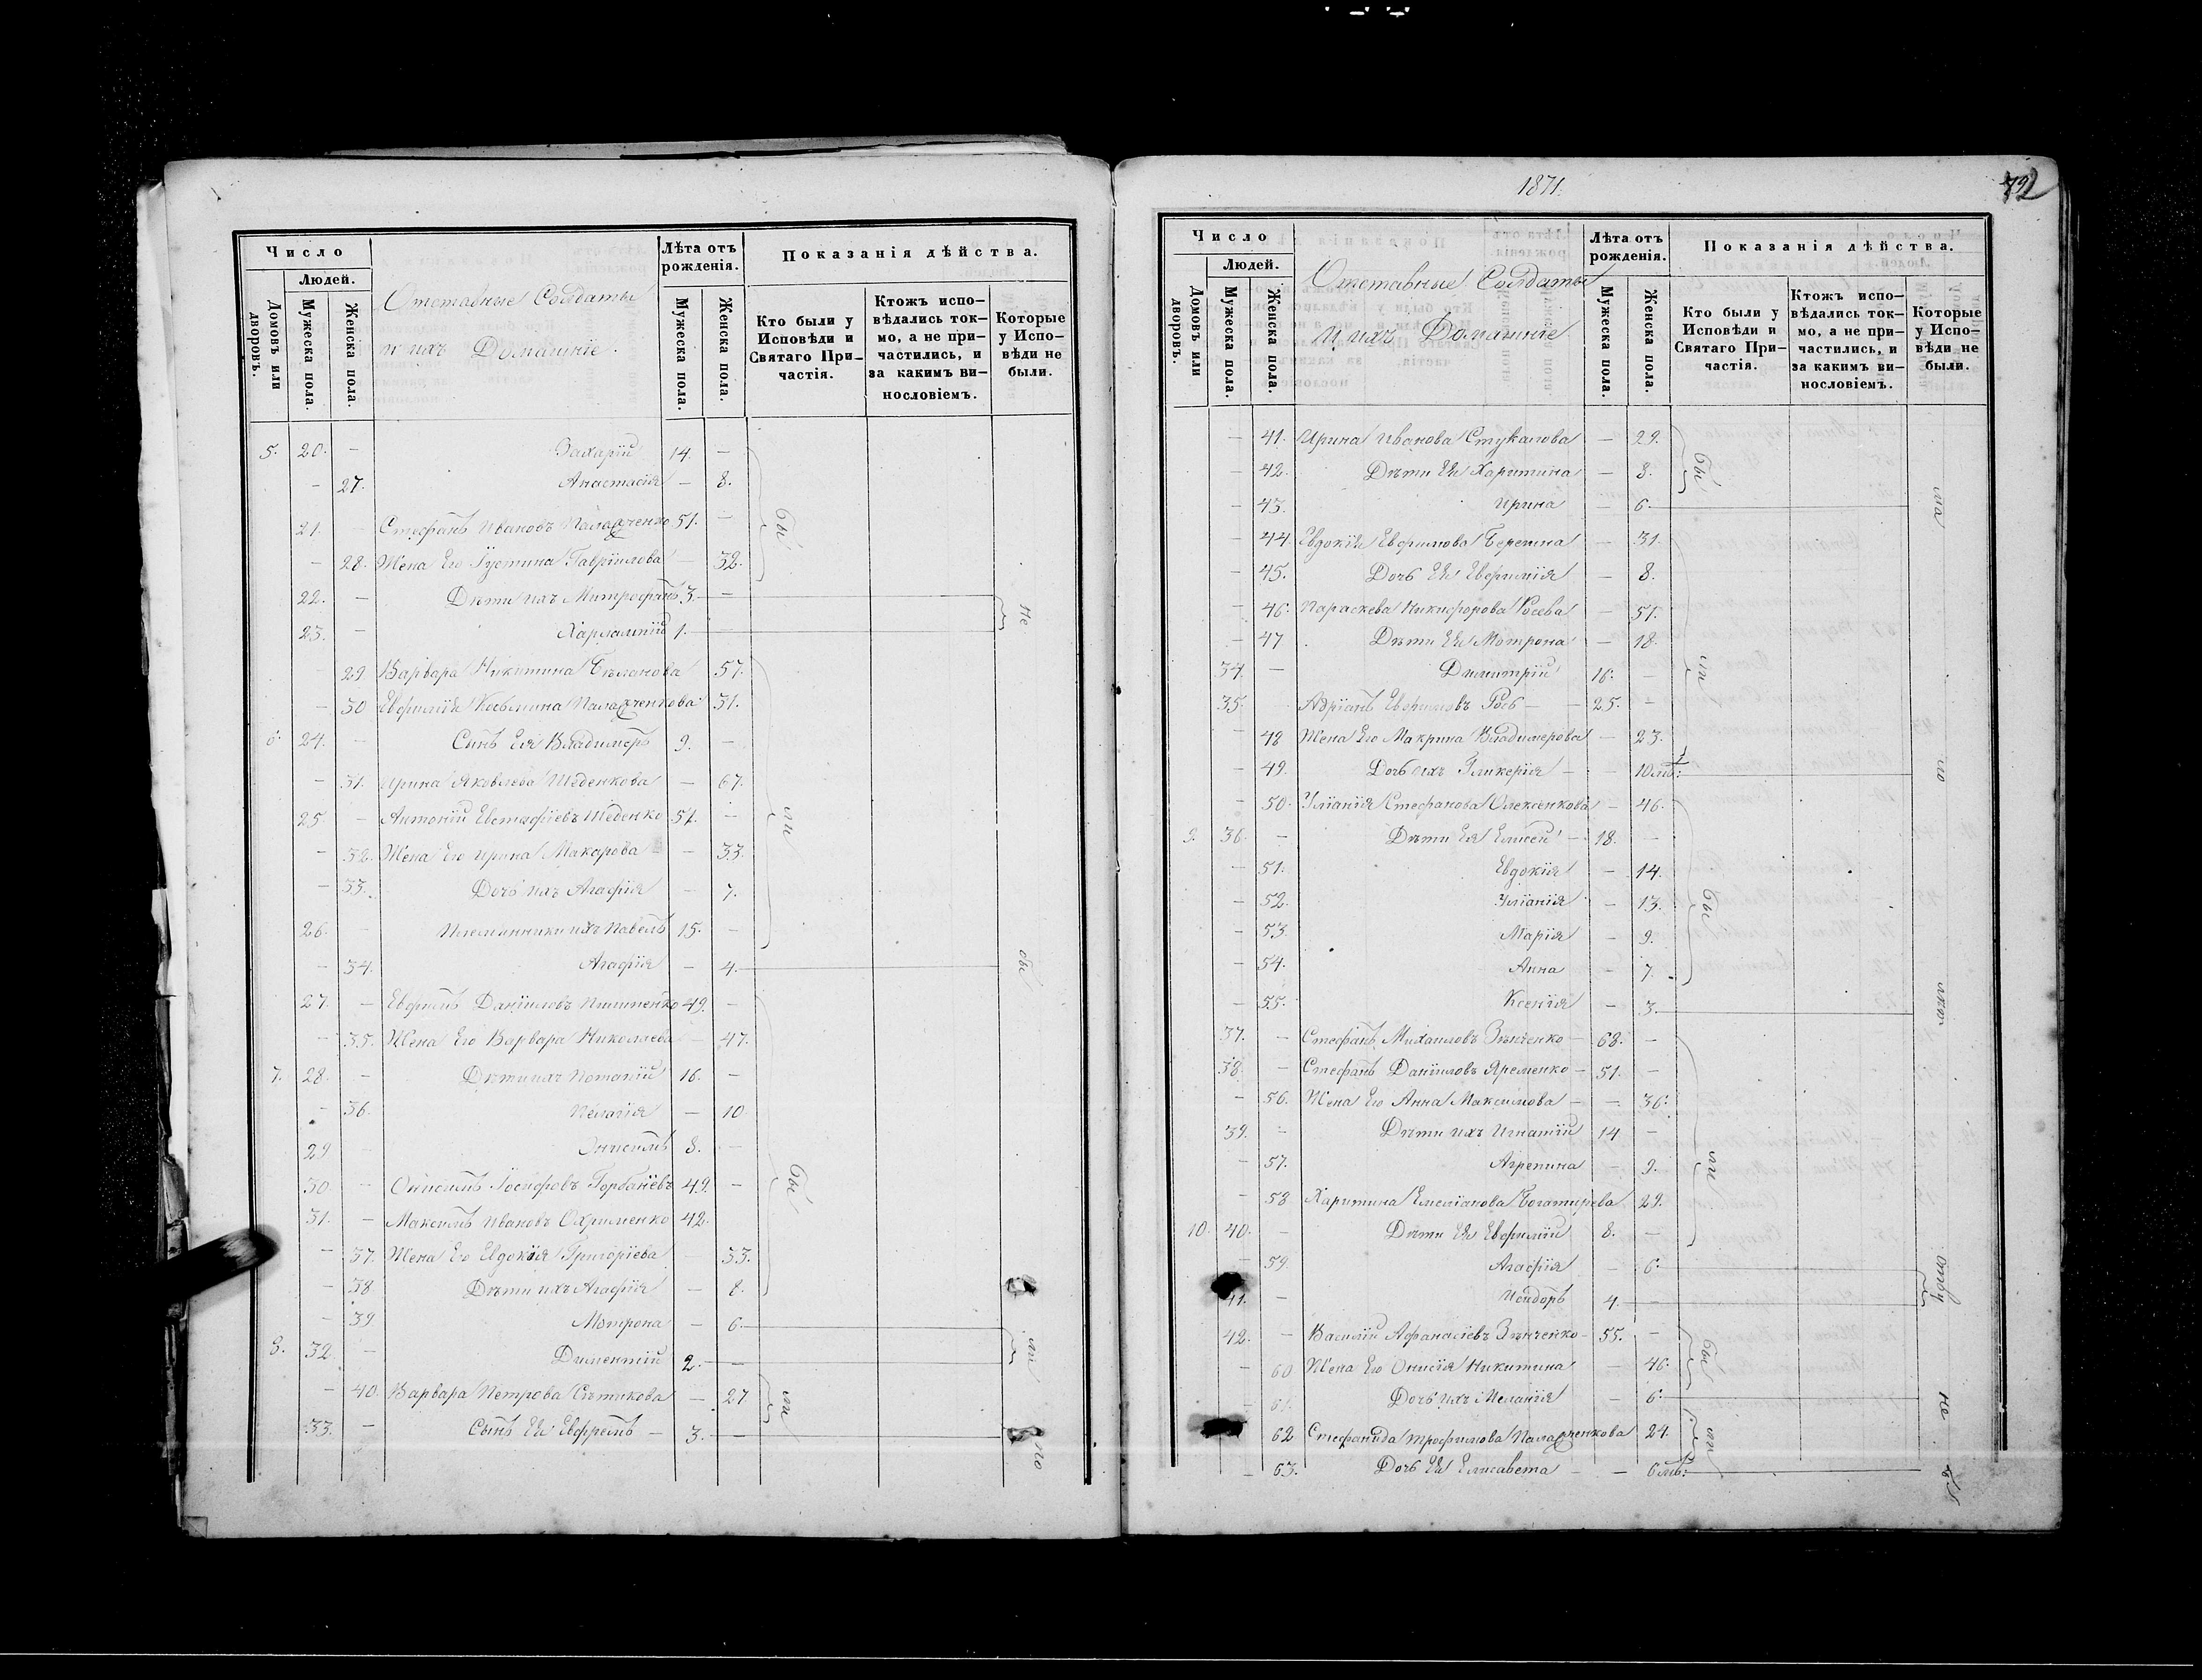 Число
Людей.
Домовъ или дворовъ.
Мужеска пола.
Женска пола.
Отставные Солдаты
и ихъ Домашніе.
Лѣта отъ рожденія.
Мужеска пола.
Женска пола.
Показанія дѣйства.
Кто были у Исповѣди и Святаго Причастія.
Ктожъ исповѣдались токмо, а не причастились, и за какимъ винословіемъ.
Которые у Исповѣди не были.
5. 20. — Захарій 14. —
— 27. Анастасія — 8.
21. Стефанъ Ивановъ 51. —
— 28. Жена Его Іустина Гавріилова — 32.
22. — Дѣти ихъ Митрофанъ 3. —
23. — Харлампій 1. —
— 29 Варвара Никитина Бѣланова 57.
— 30 Евфимія Косьмина 31.
6. 24. — Сынъ Ея Владимеръ 9. —
— 31. Ирина Яковлева Шеденкова — 67.
25 — Антоній Евстафіевъ Шеденко 51. —
— 32. Жена Его Ирина Макарова — 33.
— 33. Дочь ихъ Агафія — 7.
26. — Племянники ихъ Павелъ 15. —
— 34. Агафія — 4.
27. — Евфимъ Даніиловъ Пилипенко 49. —
— 35. Жена Его Варвара Николаева — 47.
7. 28. — Дѣти ихъ Потапій 16. —
— 36. Пелагія — 10
29 — Онисимъ 8. —
30. — Онисимъ Іосифовъ Горбаневъ 49. —
31. — Максимъ Ивановъ Охрименко 42.
— 37. Жена Его Евдокія Григоріева — 33.
— 38 Дѣти ихъ Агафія — 8.
— 39 Мотрона — 6.
8. 32 — Диментій 2. —
— 40. Варвара Петрова — 27
33. — Сынъ Ея Ефремъ — 3. —
бы
ли
бы
ли
не
бы
ли
по
1871.
72
Число
Людей.
Домовъ или дворовъ.
Мужеска пола.
Женска пола.
Отставные Солдаты
и ихъ Домашніе.
Лѣта отъ рожденія.
Мужеска пола.
Женска пола.
Показанія дѣйства.
Кто были у Исповѣди и Святаго Причастія.
Ктожъ исповѣдались токмо, а не причастились, и за какимъ винословіемъ.
Которые у Исповѣди не были.
— 41. Ирина Иванова Стукалова — 29.
— 42. Дѣти Ея Харитина — 8.
— 43. Ирина — 6.
— 44. Евдокія Евфимова Берегина — 31.
— 45. Дочь Ея Евфимія — 8.
— 46. Параскева Никифорова — 51.
— 47. Дѣти Ея Мотрона — 18.
34. — Димитрій 16. —
35. Адріанъ Евфимовъ — 25. —
— 48 Жена Его Макрина Владимерова — 23.
— 49. Дочь ихъ Гликерія — 10 мѣ:
— 50. Уліанія Стефанова Олексенкова — 46.
9. 36. — Дѣти Ея Елисей 18. —
— 51. Евдокія — 14.
— 52. Уліанія — 13.
— 53. Марія — 9.
— 54. Анна — 7.
— 55. Ксенія — 3.
37. — Стефанъ Михаиловъ Зѣнченко — 68. —
38 — Стефанъ Даніиловъ Яременко — 51. —
— 56. Жена Его Анна Максимова — 36.
39. — Дѣти ихъ Игнатій 14 —
— 57. Агрепина — 9.
— 58 Харитина Емеліанова Богатирева 29.
10. 40. — Дѣти Ея Евфимій 8. —
— 59. Агафія — 6.
41. — Исидоръ 4. —
42. — Василій Афанасіевъ Зѣнченко — 55. —
— 60 Жена Его Онисія Никитина — 46.
— 61. Дочь ихъ Меланія — 6.
62 Стефанида Трофимова 24.
— 63. Дочь Ея Елисавета — 6 мѣ:
бы
ли
бы
ли
бы
ли
не